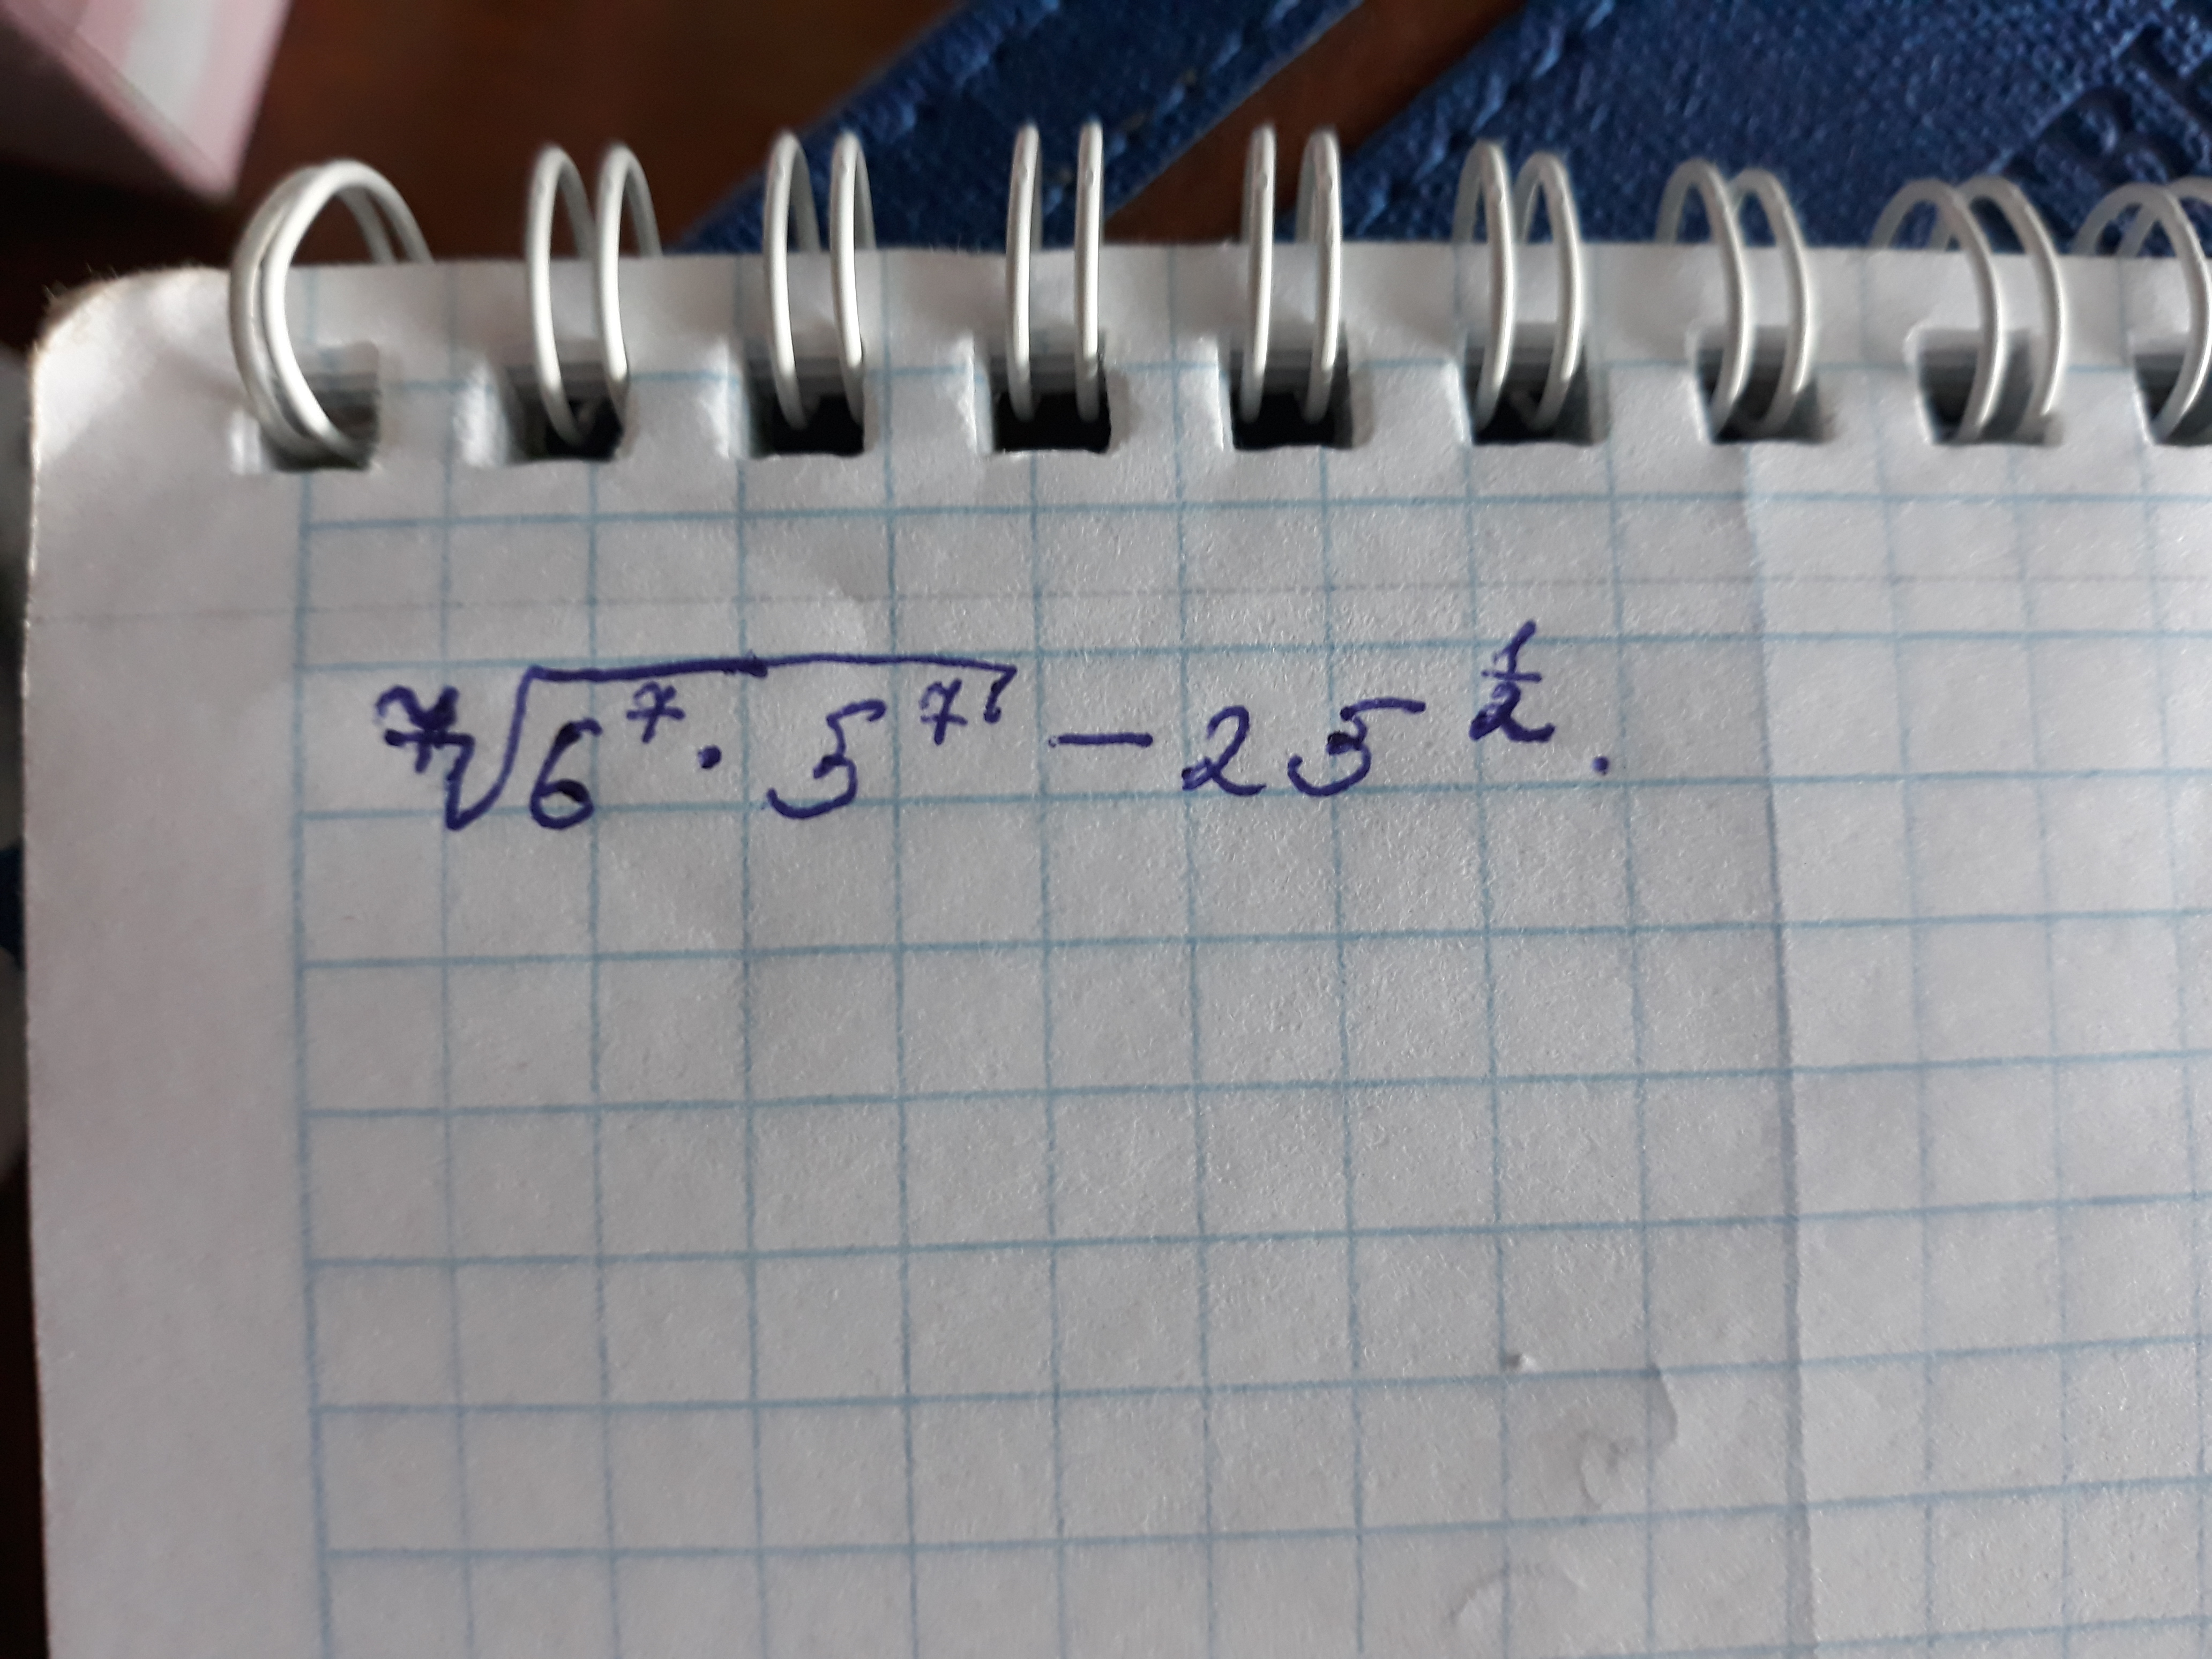 ⁷√(6⁷ · 5⁷) − 25^(1/2).